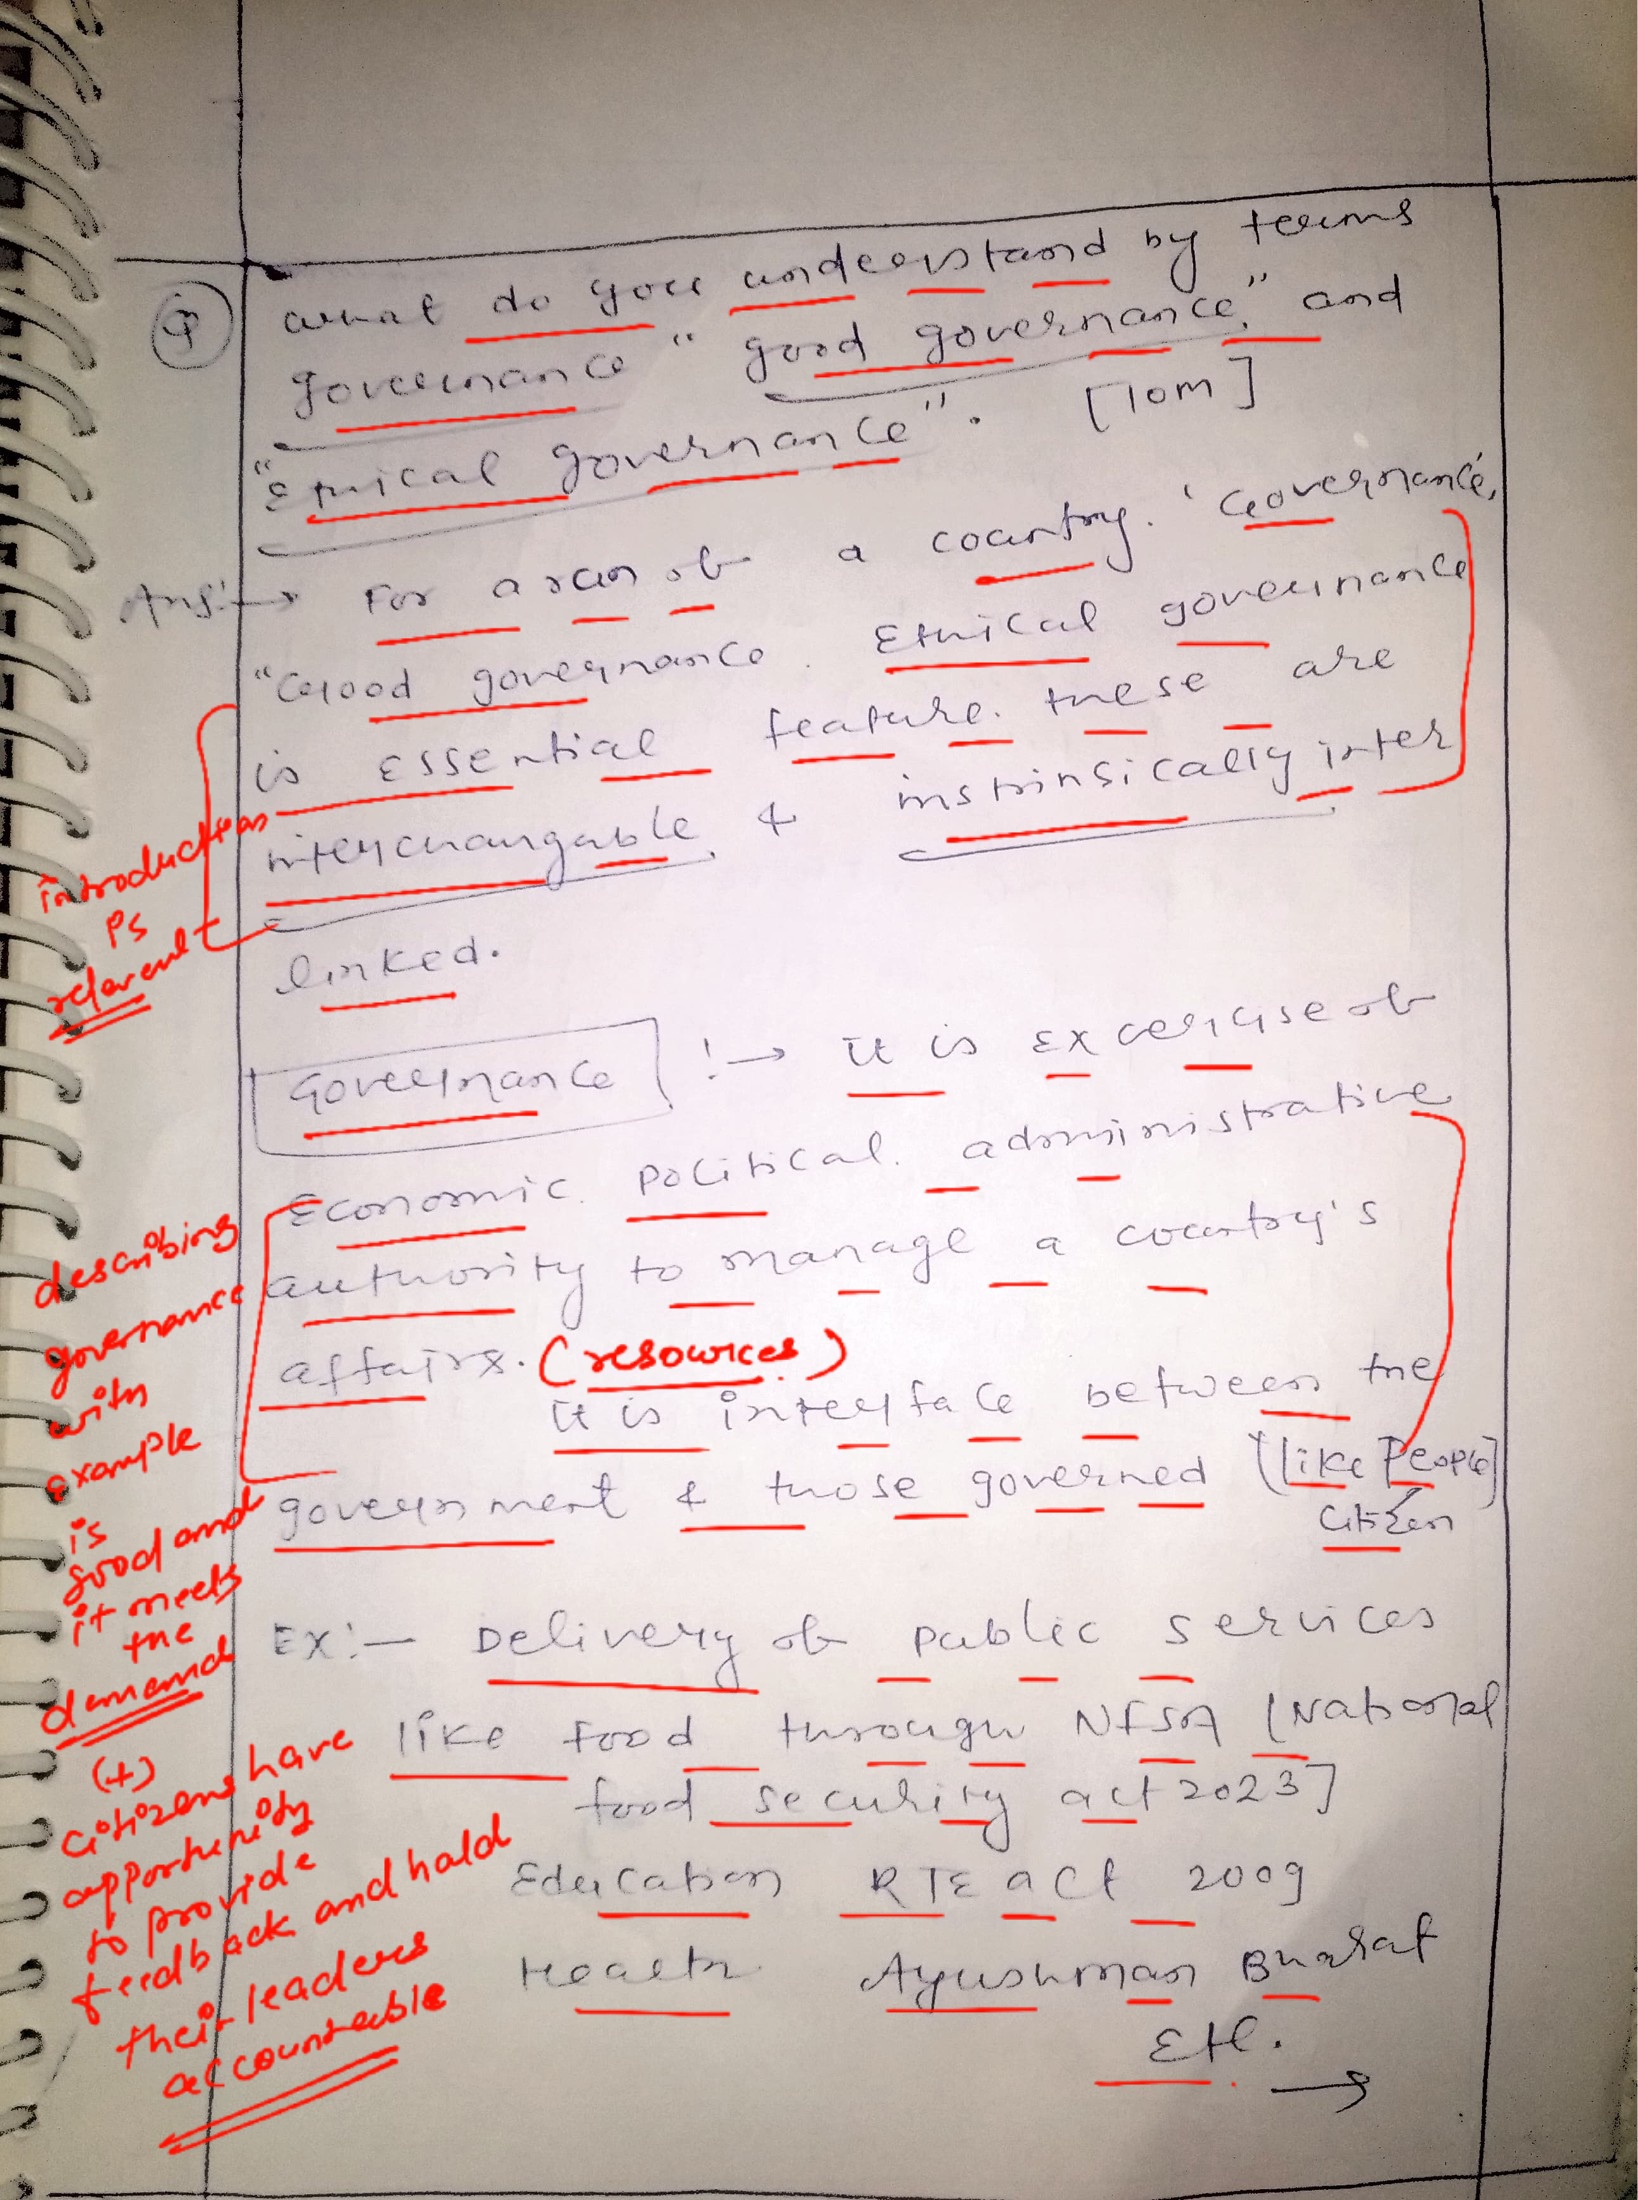 Q
what do you understand by terms
governance " good governance," and
"Ethical governance". [10m]
Ans:→ For a run of a country. 'Governance,
"Good governance. Ethical governance
is essential feature. these are
interchangable & instrinsically inter
linked.
introduction
is
relevent
Governance :→ it is excercise of
Economic. political. administrative
authority to manage a country's
affairs. (resources)
it is interface between the
government & those governed [like People]
citizen
describing
governance
with
example
is
good and
it meets
the
demand
Ex:- Delivery of public services
like food through NFSA [National
food security act 2023]
Education RTE act 2009
Health Ayushman Bharat
Etc. →
(+)
citizens have
opportunity
to provide
feedback and hold
their leaders
accounteable